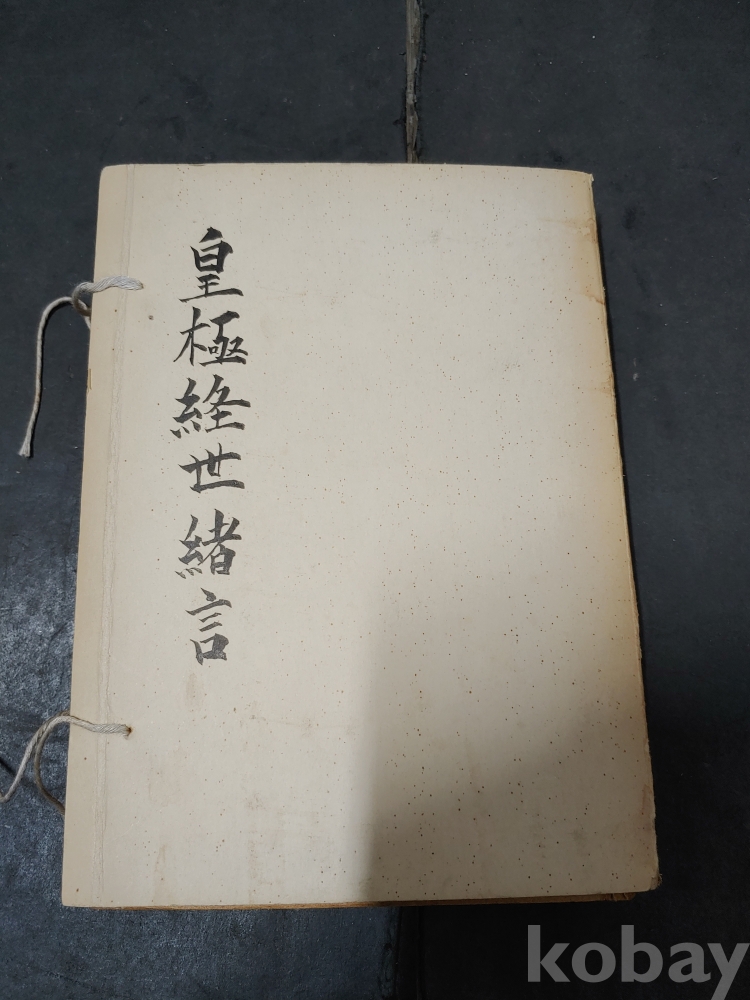 皇極経世緒言
kobay